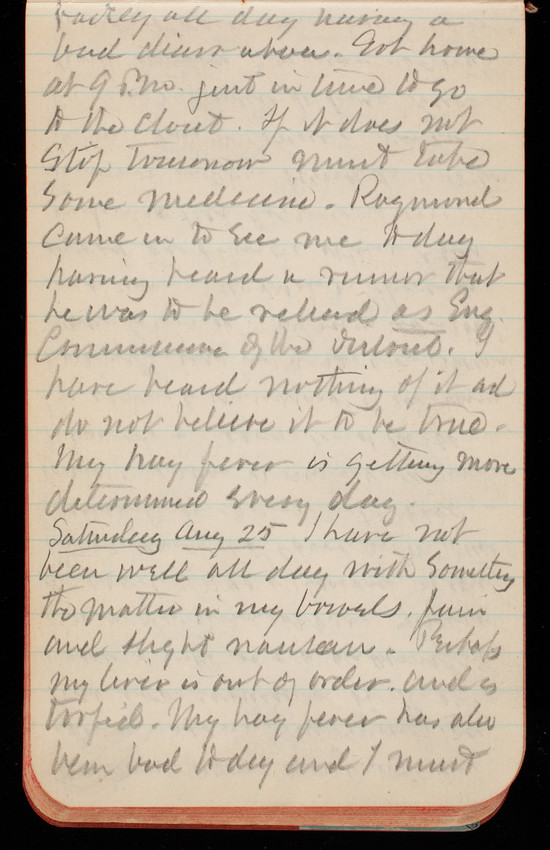 all day having a
bad diarrahoea. Got home
at 9 P.M. just in time to go
to the closet. If it does not
stop tomorrow must take
some medicine. Raymond
came in to see me today
having heard a rumor that
he was to be relieved as Eng.
Commissioner of the District. I
have heard nothing of it and
do not believe it to be true.
My hay fever is getting more
determined every day.
Saturday Aug 25 I have not
been well all day with something
the matter in my bowels. pain
and slight nausea. Perhaps
my liver is out of order. and is
torpid. My hay fever has also
been bad today and I must